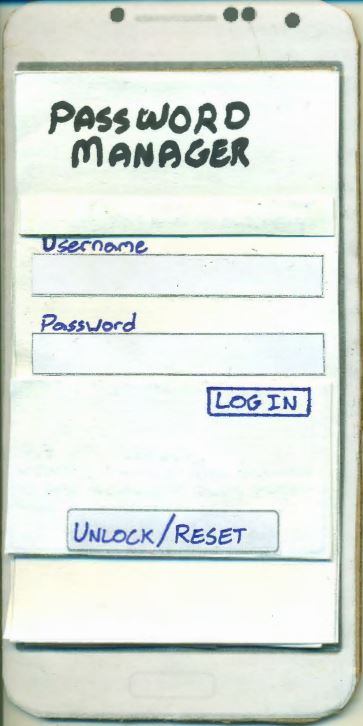 PASSWORD
MANAGER
Username
Password
LOG IN
UNLOCK/RESET